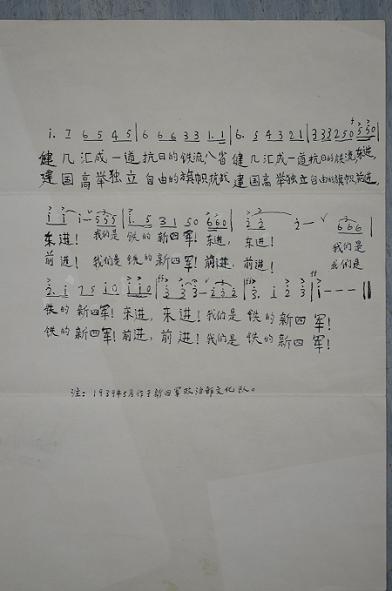 i. 7 6 5 4 5 | 6 6 6 3 3 1. 1 | 6. 5 4 3 2 1 | 3 3 3 2 5 0 5 5 0 |
健儿汇成一道抗日的铁流八省健儿汇成一道抗日的铁流,东进,
建国高举独立自由的旗帜抗战建国高举独立自由的旗帜,前进,
i i i - 5 5 5 | i. 5 3 1 5 0 6 6 0 | 2 2 2 - 6 6 6 |
东进! 我们是铁的新四军! 东进, 东进! 我们是
前进! 我们是铁的新四军! 前进, 前进! 我们是
3. i 7 5 i 0 i i 0 | 3 3 3 - 2 2 2 | 3. i 2 3 | i - - - ‖
铁的新四军! 东进, 东进! 我们是铁的新四军!
铁的新四军! 前进, 前进! 我们是铁的新四军!
注: 1939年5月作于新四军政治部文化队。